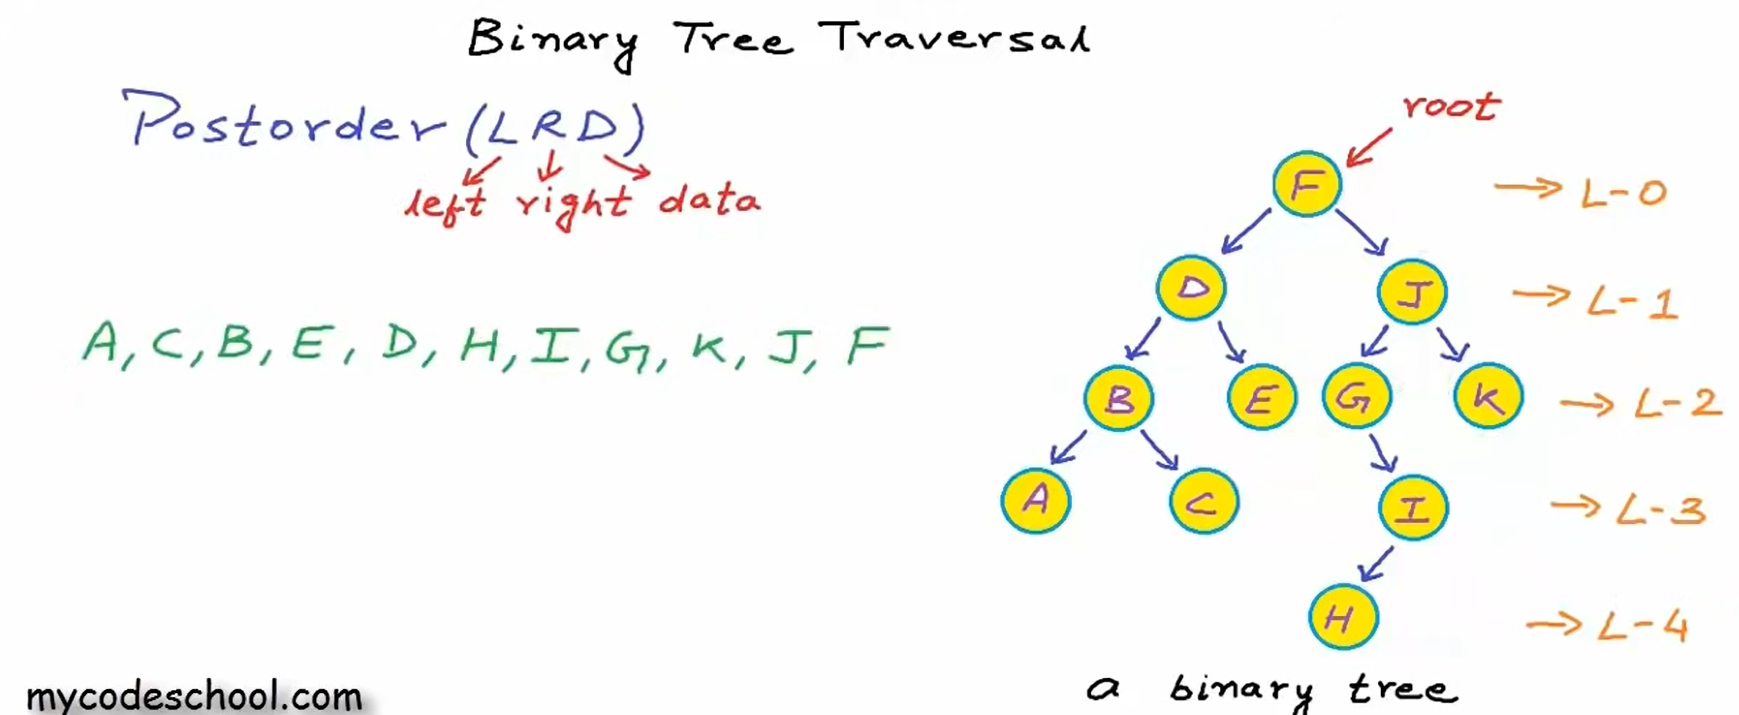 Binary Tree Traversal
Postorder (LRD)
left right data
A, C, B, E, D, H, I, G, K, J, F
root
F → L-0
D J → L-1
B E G K → L-2
A C I → L-3
H → L-4
a binary tree
mycodeschool.com